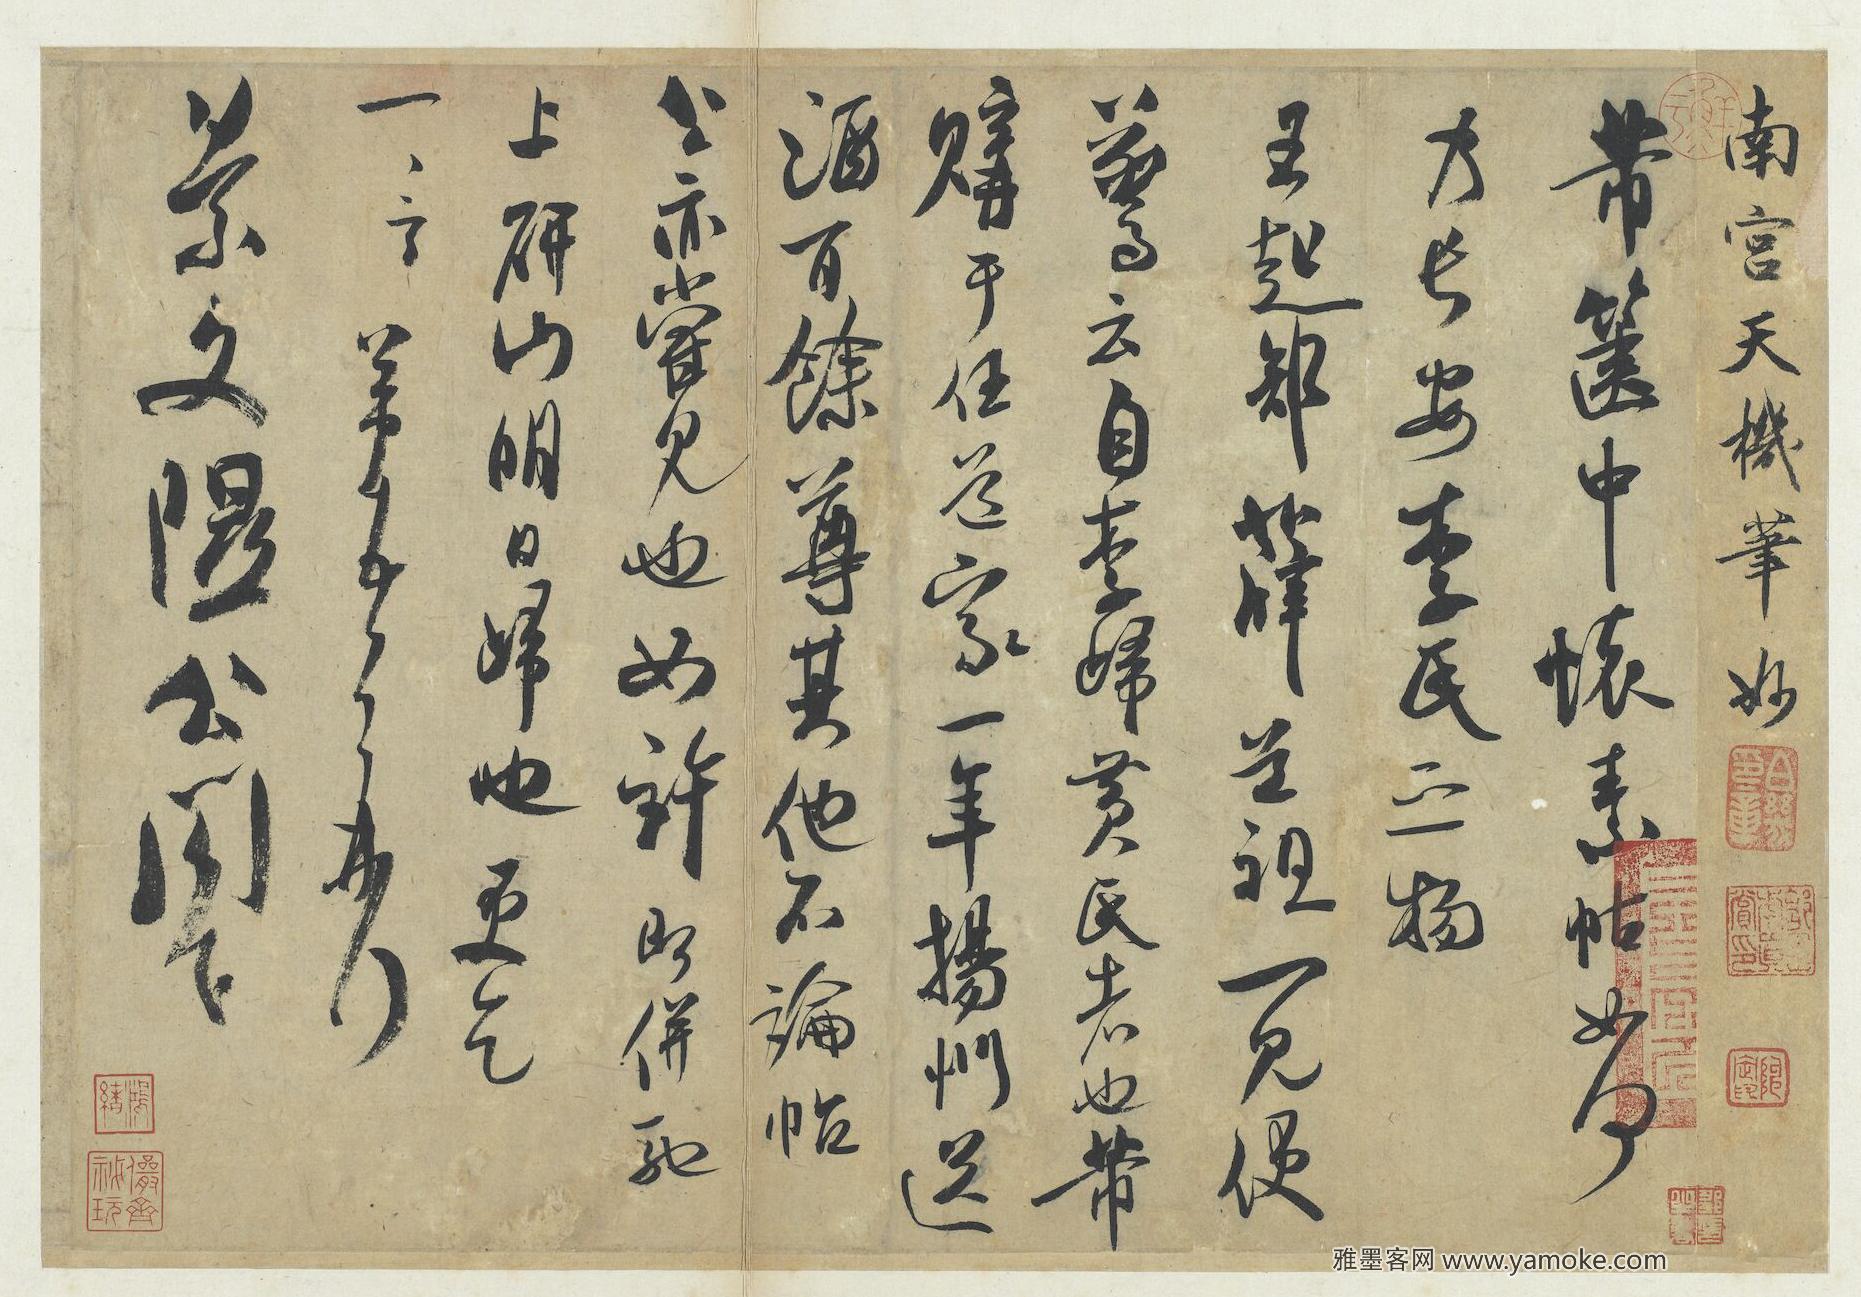 南宮天機筆妙
芾篋中懷素帖如何
乃長安李氏之物
王起部薛道祖一見便
驚云自李歸黃氏者也芾
購于任道家一年揚州送
酒百餘尊其他不論帖
公亦嘗見也如許即併馳
上研山明日歸也更乞
一言芾頓首再拜
景文隰公閣下
鴻緒
儼齋秘玩
雅墨客网 www.yamoke.com